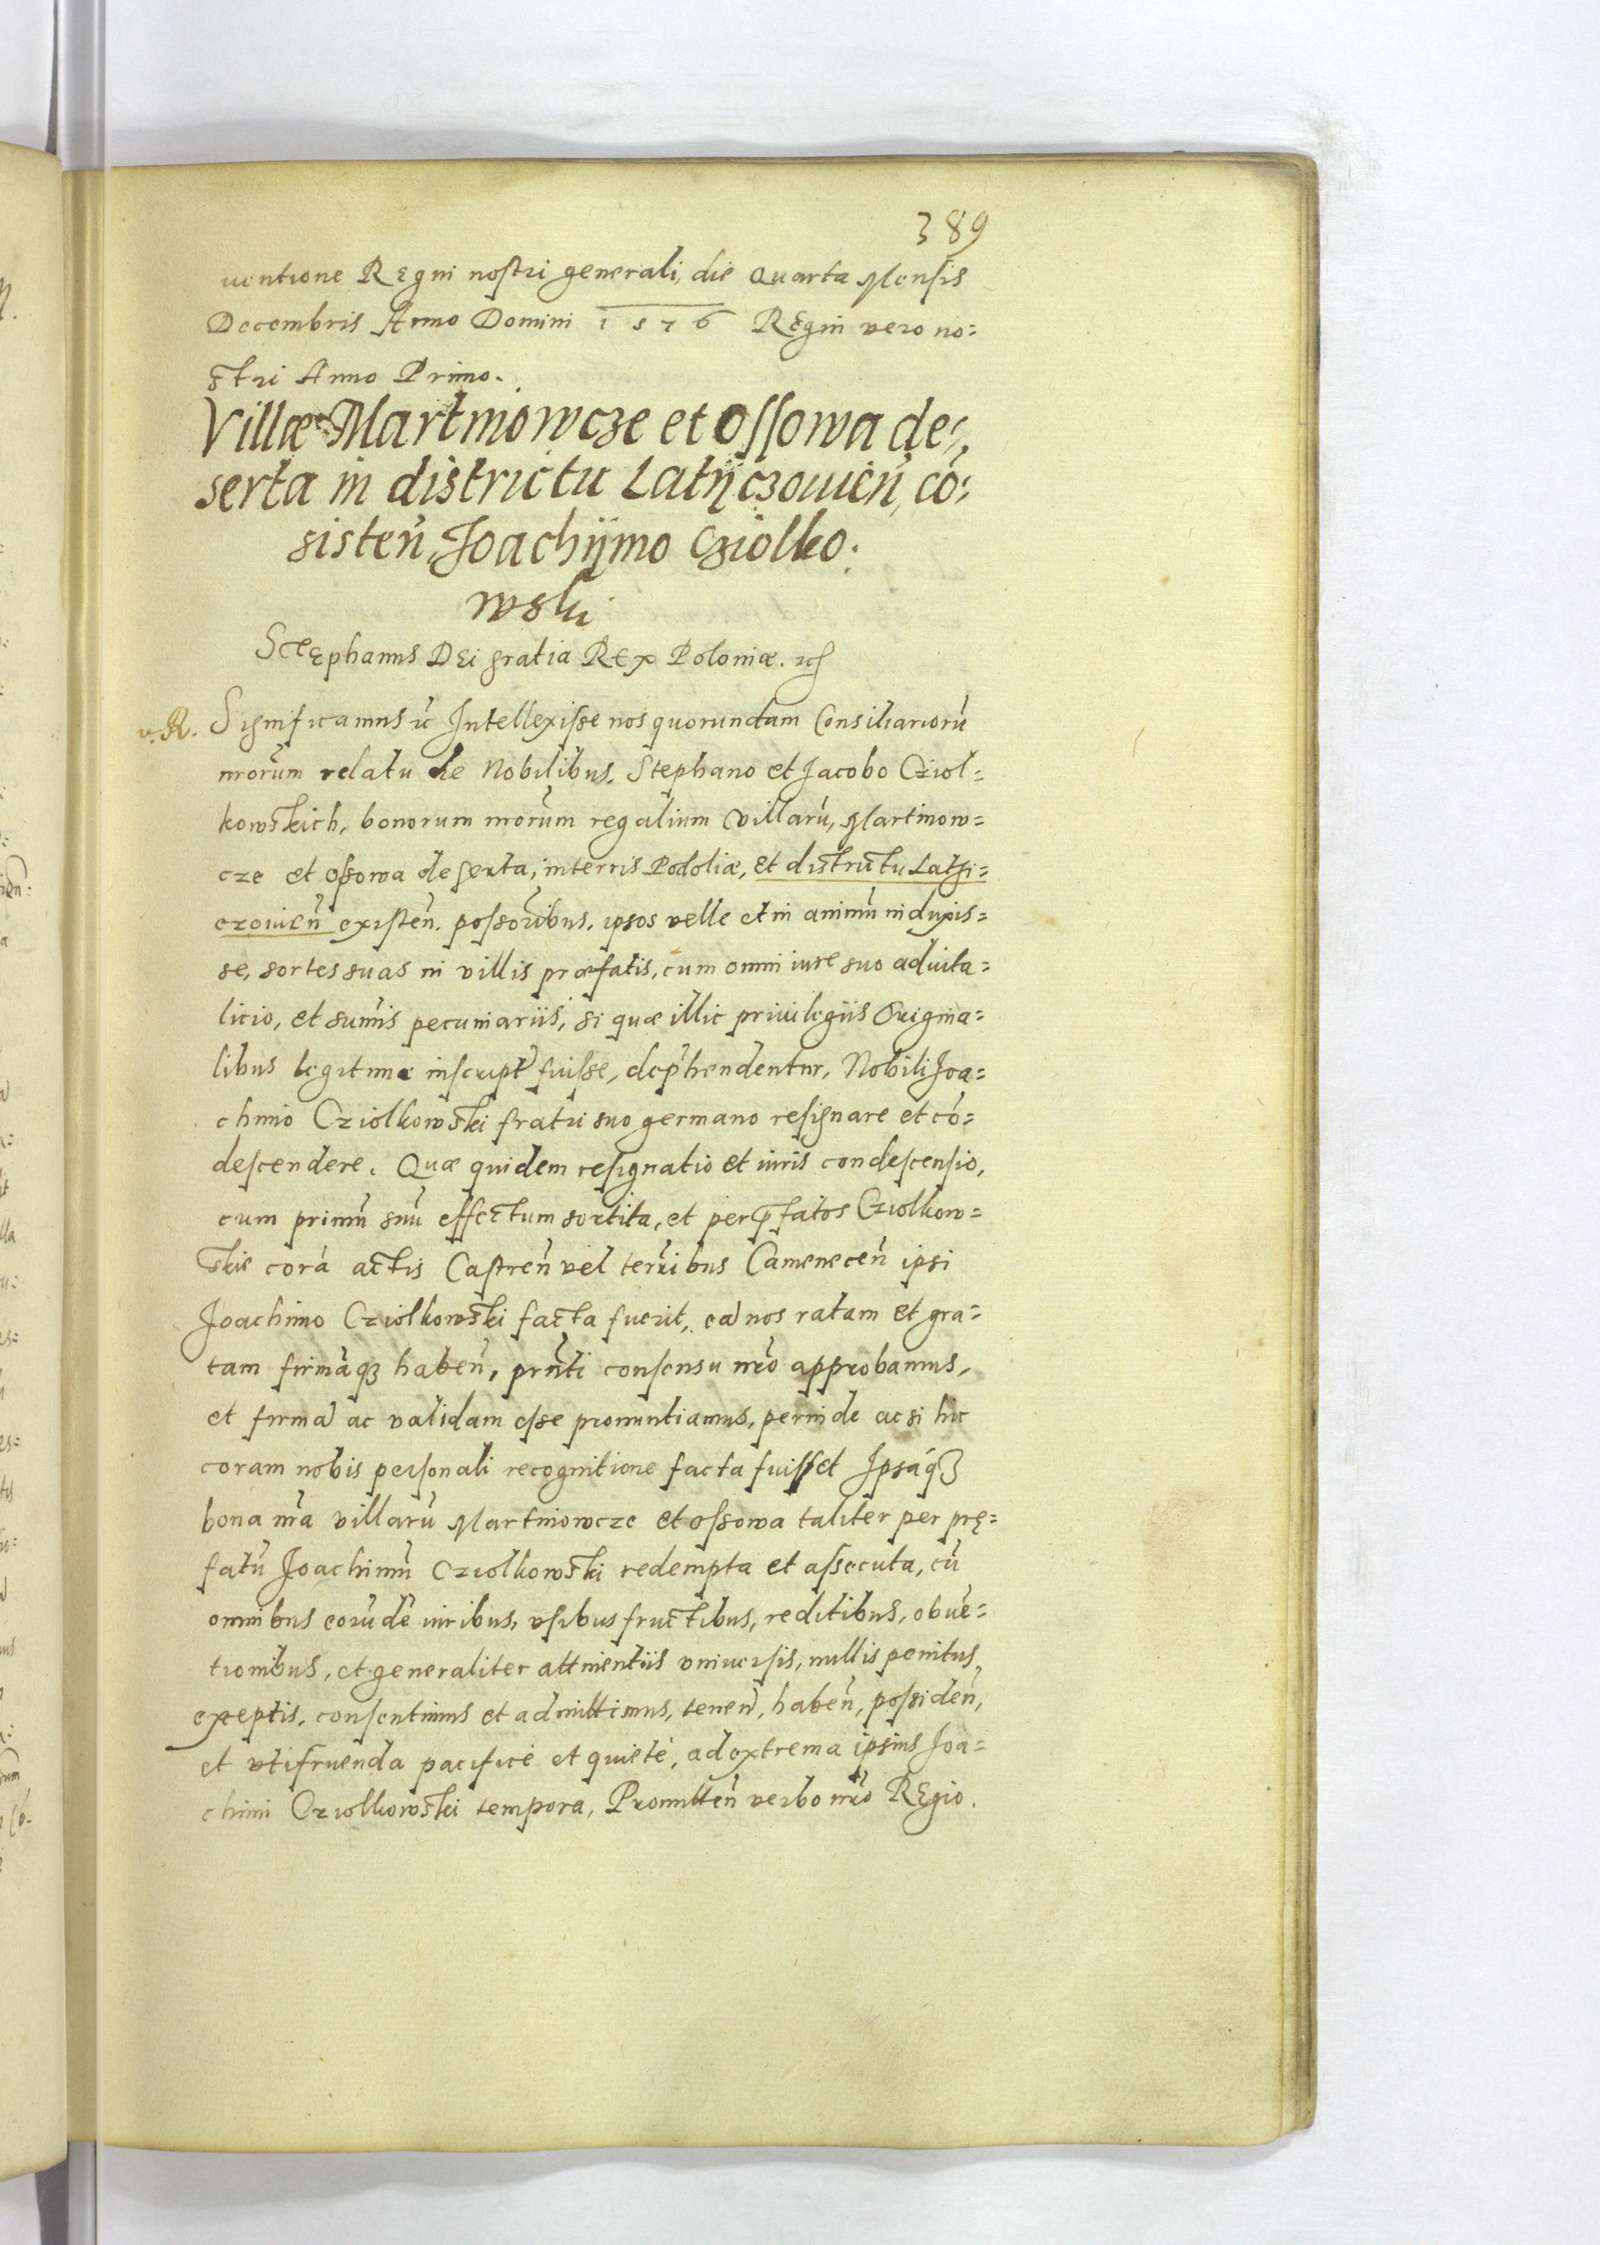 389
uentione Regni nostri generali, die Quarta Mensis
Decembris Anno Domini 1576 Regni vero no=
stri Anno Primo.
Villæ Martinowcze et Ossowa de=
serta in districtu Latijczouień, có=
sisteń, Joachijmo Cziolko=
wski
Stephanus Dei gratia Rex Poloniæ. etc
v. R. Significamus etc Intellexisse nos quorundam Consiliariorū
nrorum relatu de Nobilibus, Stephano et Jacobo Cziol=
kowskich, bonorum nrorum regalium Villarū, Martinow=
cze et Ossowa deserta, in terris Podoliæ, et districtu Latyi=
czouień existeń. possoribus, ipsos velle et in animū induxis=
se, sortes suas in villis præfatis, cum omni iure suo aduita=
licio, et summis pecuniariis, si quæ illic priuilegiis Origina=
libus legitime inscript fuisse, deprhendentur, Nobili Joa=
chimo Cziolkowski fratri suo germano resignare et có=
descendere. Quæ quidem resignatio et iuris condescensio,
cum primū suū effectum sortita, et per pfatos Cziolkow=
skie corá actis Castreń vel terribus Cameneceń ipsi
Joachimo Cziolkowski facta fuerit, ea nos ratam et gra=
tam firmáq3 habeń, prnti consensu nro approbamus,
et firma ac validam esse pronuntiamus, perinde ac si hic
coram nobis personali recognitione facta fuisset Ipsáq3
bona nra villarū Martinowcze et Ossowa taliter per prę=
fatū Joachimū Cziolkowski redempta et assecuta, cū
omnibus eorūdē iuribus, vsibus fructibus, reditibus, obuē=
tionibus, et generaliter attinentiis vniuersis, nullis penitus
exceptis, consentimus et admittimus, teneń, habeń, possideń,
et vtifruenda pacifice et quietè, ad extrema ipsius Joa=
chimi Cziolkowski tempora, Promitteń verbo nro Regio.